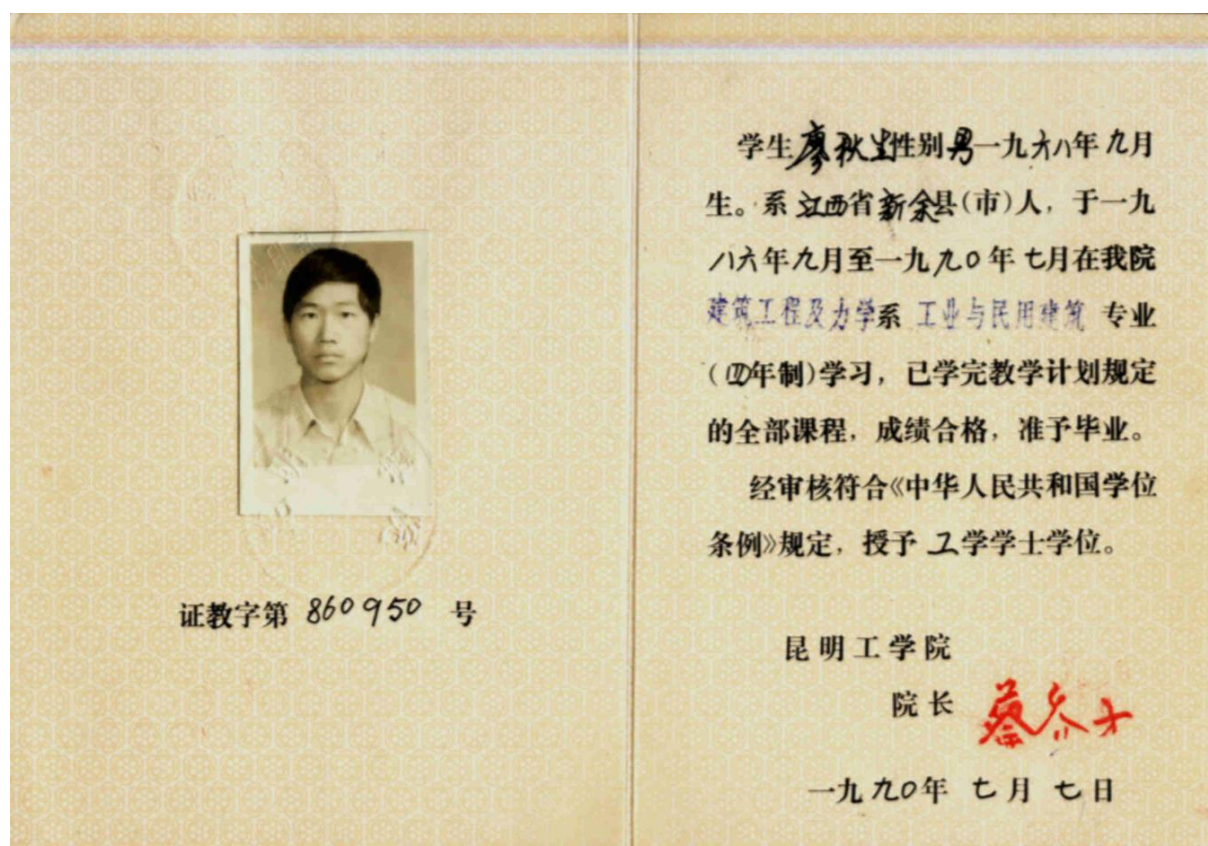 证教字第 860950 号
学生廖秋生性别男一九六八年九月
生。系江西省新余县(市)人，于一九
八六年九月至一九九〇年七月在我院
建筑工程及力学系 工业与民用建筑 专业
(四年制)学习，已学完教学计划规定
的全部课程，成绩合格，准予毕业。
经审核符合《中华人民共和国学位
条例》规定，授予 工学学士学位。
昆明工学院
院长
一九九〇年 七月七日